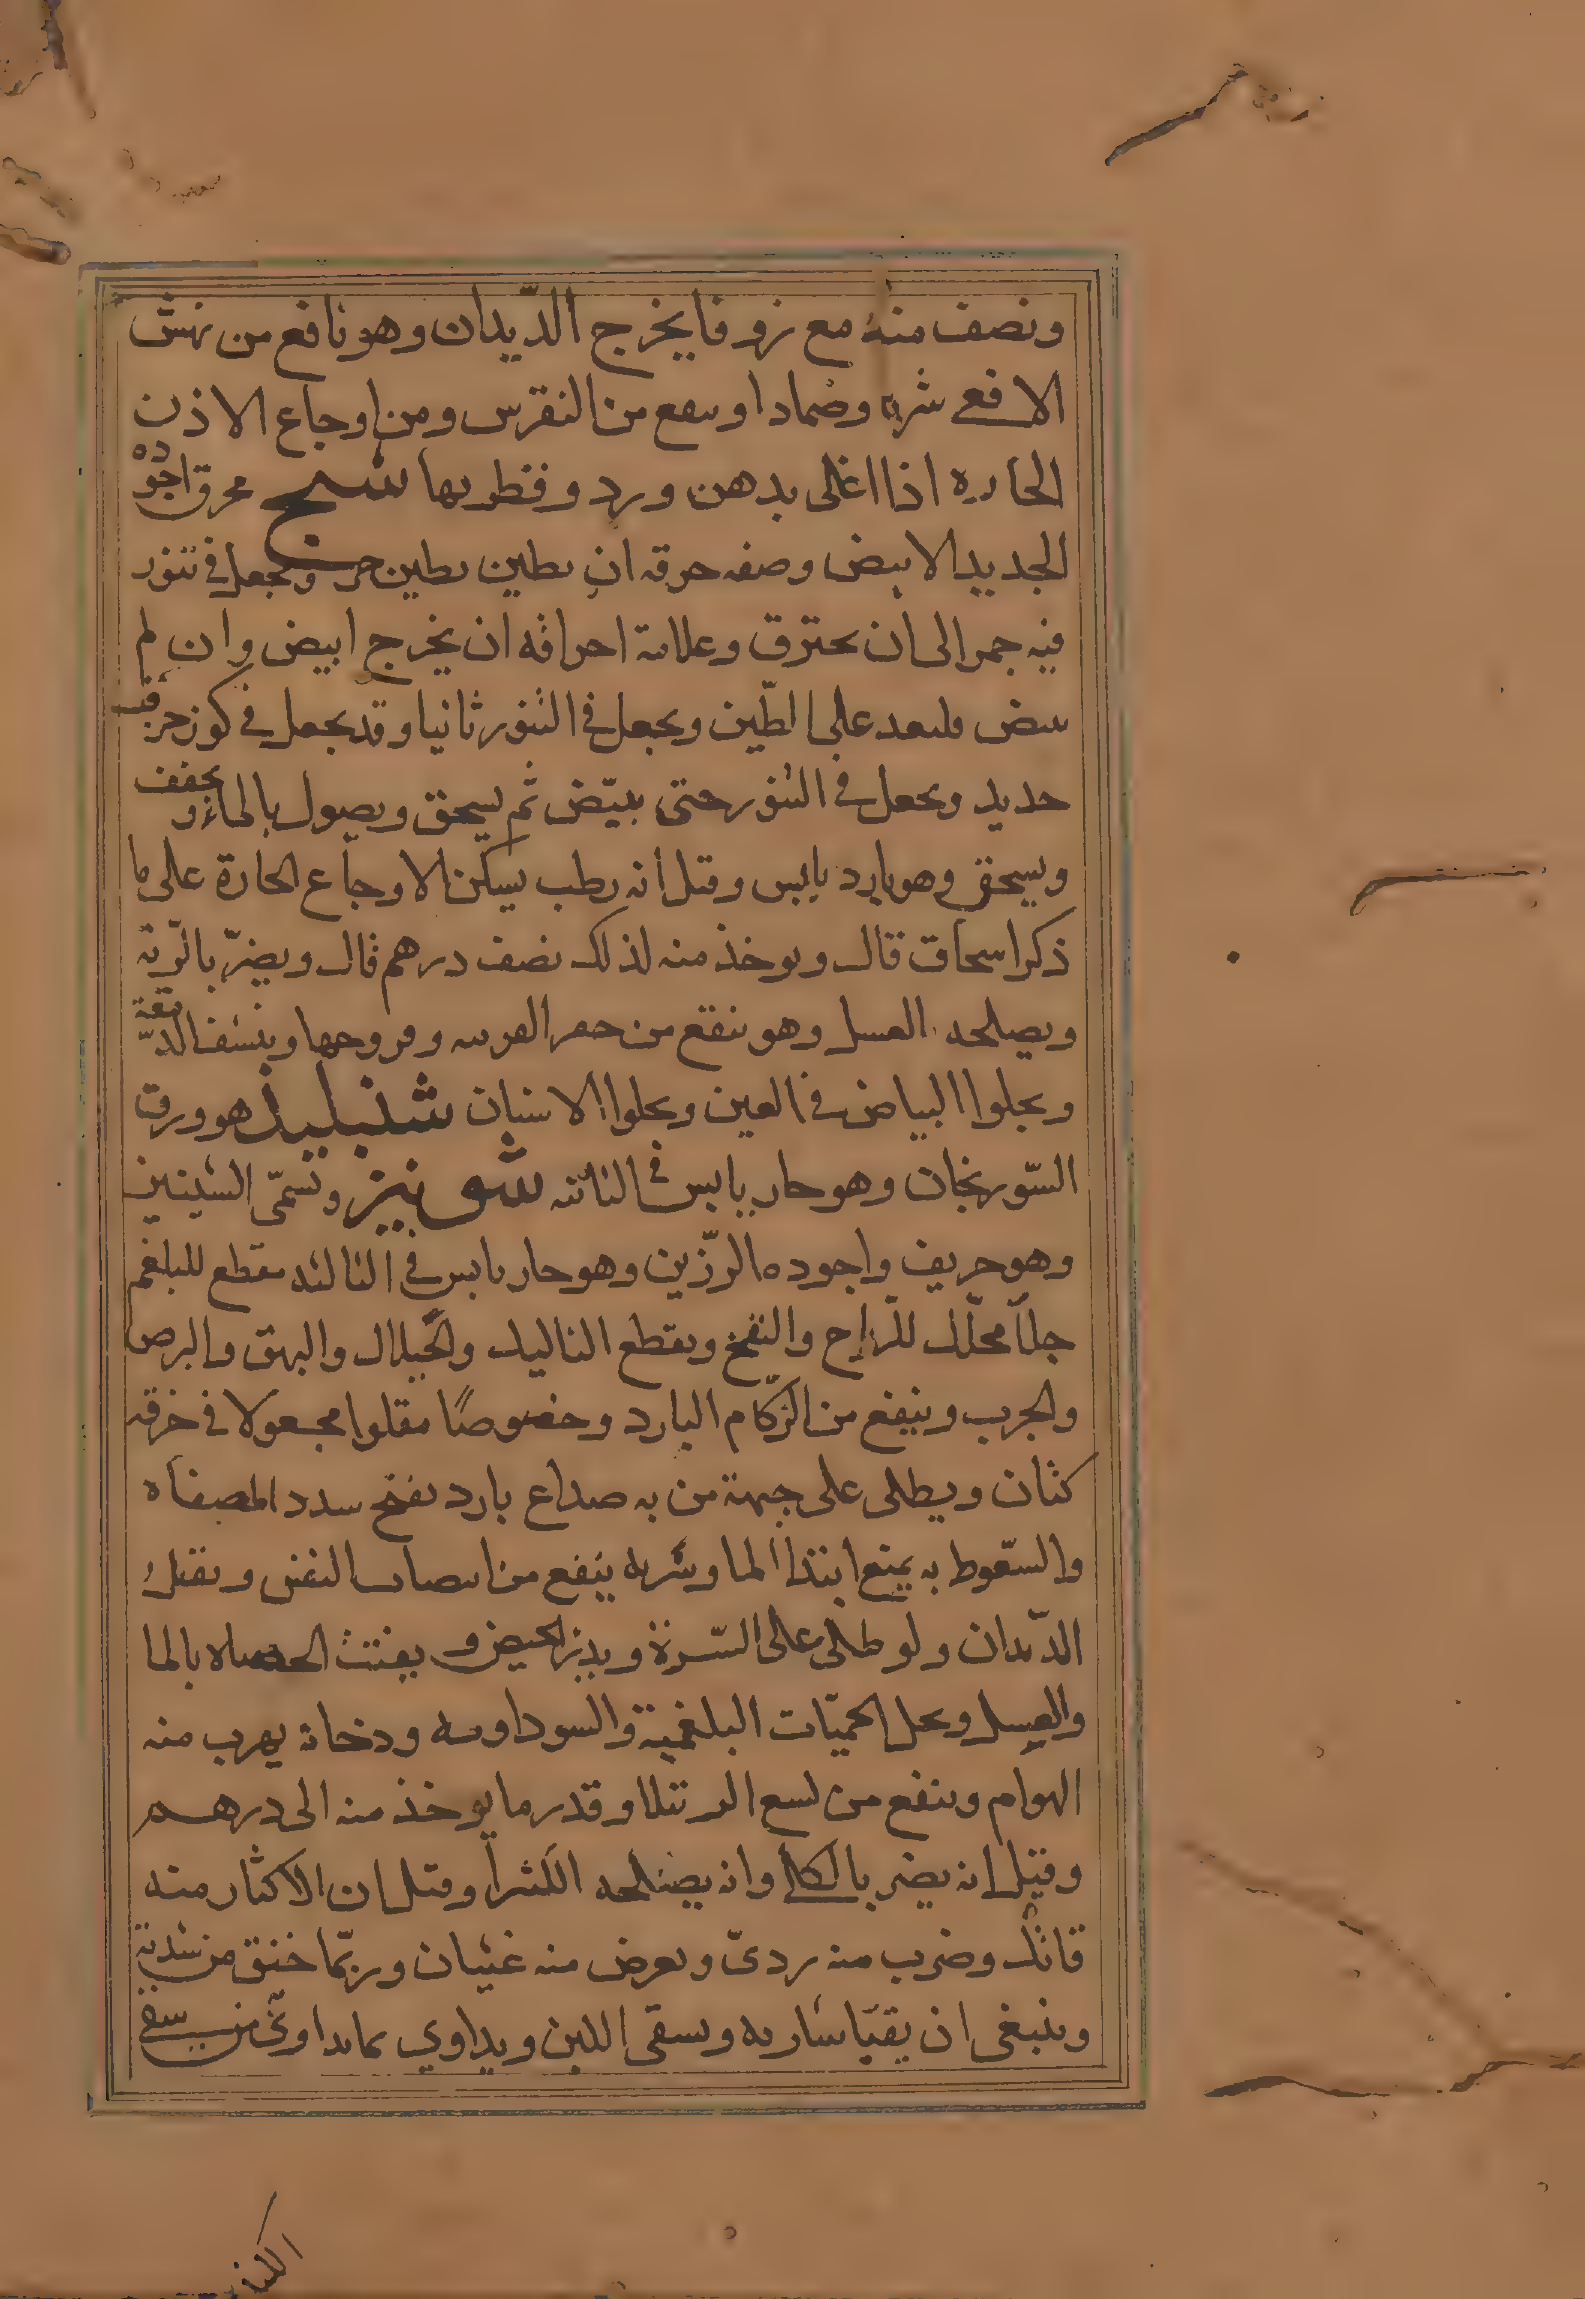 ونصف منه مع زوفا يخرج الديدان وهو نافع من نهش
الافعى شربا وضمادا وينفع من النقرس ومن اوجاع الاذن
الحاره اذا اغلى بدهن ورد وقطر بها شنج محرق اجوده
الجديد الابيض وصفه حرقه ان يطين بطين حر ويجعل في تنور
فيه جمر الى ان يحترق وعلامة احراقه ان يخرج ابيض وان لم
يبيض فليعد على الطّين ويجعل في التنور ثانيا وقد يجعل في كوز
حديد ويجعل في التنور حتى يبيّض ثم يسحق ويصول بالماء ويجفف
ويسحق وهو بارد يابس وقيل انه رطب يسكن الاوجاع الحارة على ما
ذكر اسحاق قال ويوخذ منه لذلك نصف درهم قال ويضرّ بالرّية
ويصلحه العسل وهو ينفع من حفر القرنيه وقروحها وينشف الدمعة
ويجلوا البياض في العين ويجلوا الاسنان شنبليذ هو ورق
السّورنجان وهو حار يابس في الثانيه شونيز وتسمّى الشينيز
وهو حريف واجوده الرّزين وهو حار يابس في الثالثه مقطع للبلغم
جلّا محلّل للرياح والنفخ ويقطع الثاليل والخيلان والبهق والبرص
والجرب وينفع من الزكام البارد وخصوصًا مقلوا مجعولا في خرقه
كتان ويطلى على جبهة من به صداع بارد يفتح سدد المصفاه
والسّعوط به يمنع ابتدا الما وشربه ينفع من انتصاب النفس ويقتل
الدّيدان ولو طلى على السّرة ويدر الحيض ويفتت الحصاه بالما
والعسل ويحل الحميّات البلغمية والسوداويه ودخانه يهرب منه
الهوام وينفع من لسع الرتيلا وقدر ما يوخذ منه الى درهم
وقيل انه يضر بالكلى وانه يصلحه الكثيرا وقيل ان الاكثار منه
قاتل وضرب منه ردىّ ويعرض منه غثيان وربّما خنق من شدته
وينبغى ان يقيّا شاربه ويسقى اللبن ويداوي بما يداوى من سقى